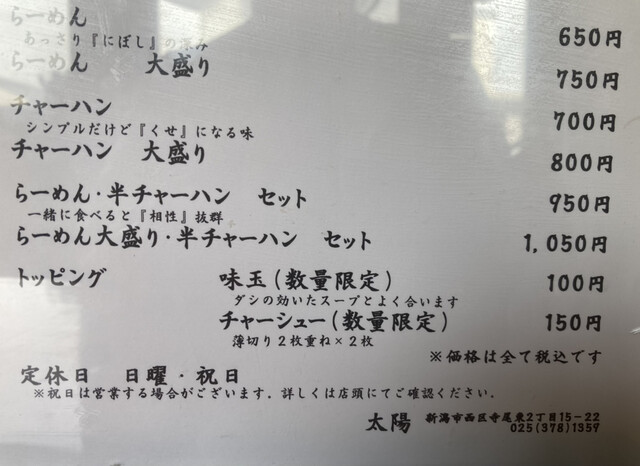 らーめん 650円
あっさり『にぼし』の深み
らーめん 大盛り 750円
チャーハン 700円
シンプルだけど『くせ』になる味
チャーハン 大盛り 800円
らーめん・半チャーハン セット 950円
一緒に食べると『相性』抜群
らーめん大盛り・半チャーハン セット 1,050円
トッピング 味玉(数量限定) 100円
ダシの効いたスープとよく合います
チャーシュー(数量限定) 150円
薄切り2枚重ね×2枚
※価格は全て税込です
定休日 日曜・祝日
※祝日は営業する場合がございます．詳しくは店頭にてご確認ください．
太陽 新潟市西区寺尾東2丁目15-22
025(378)1357